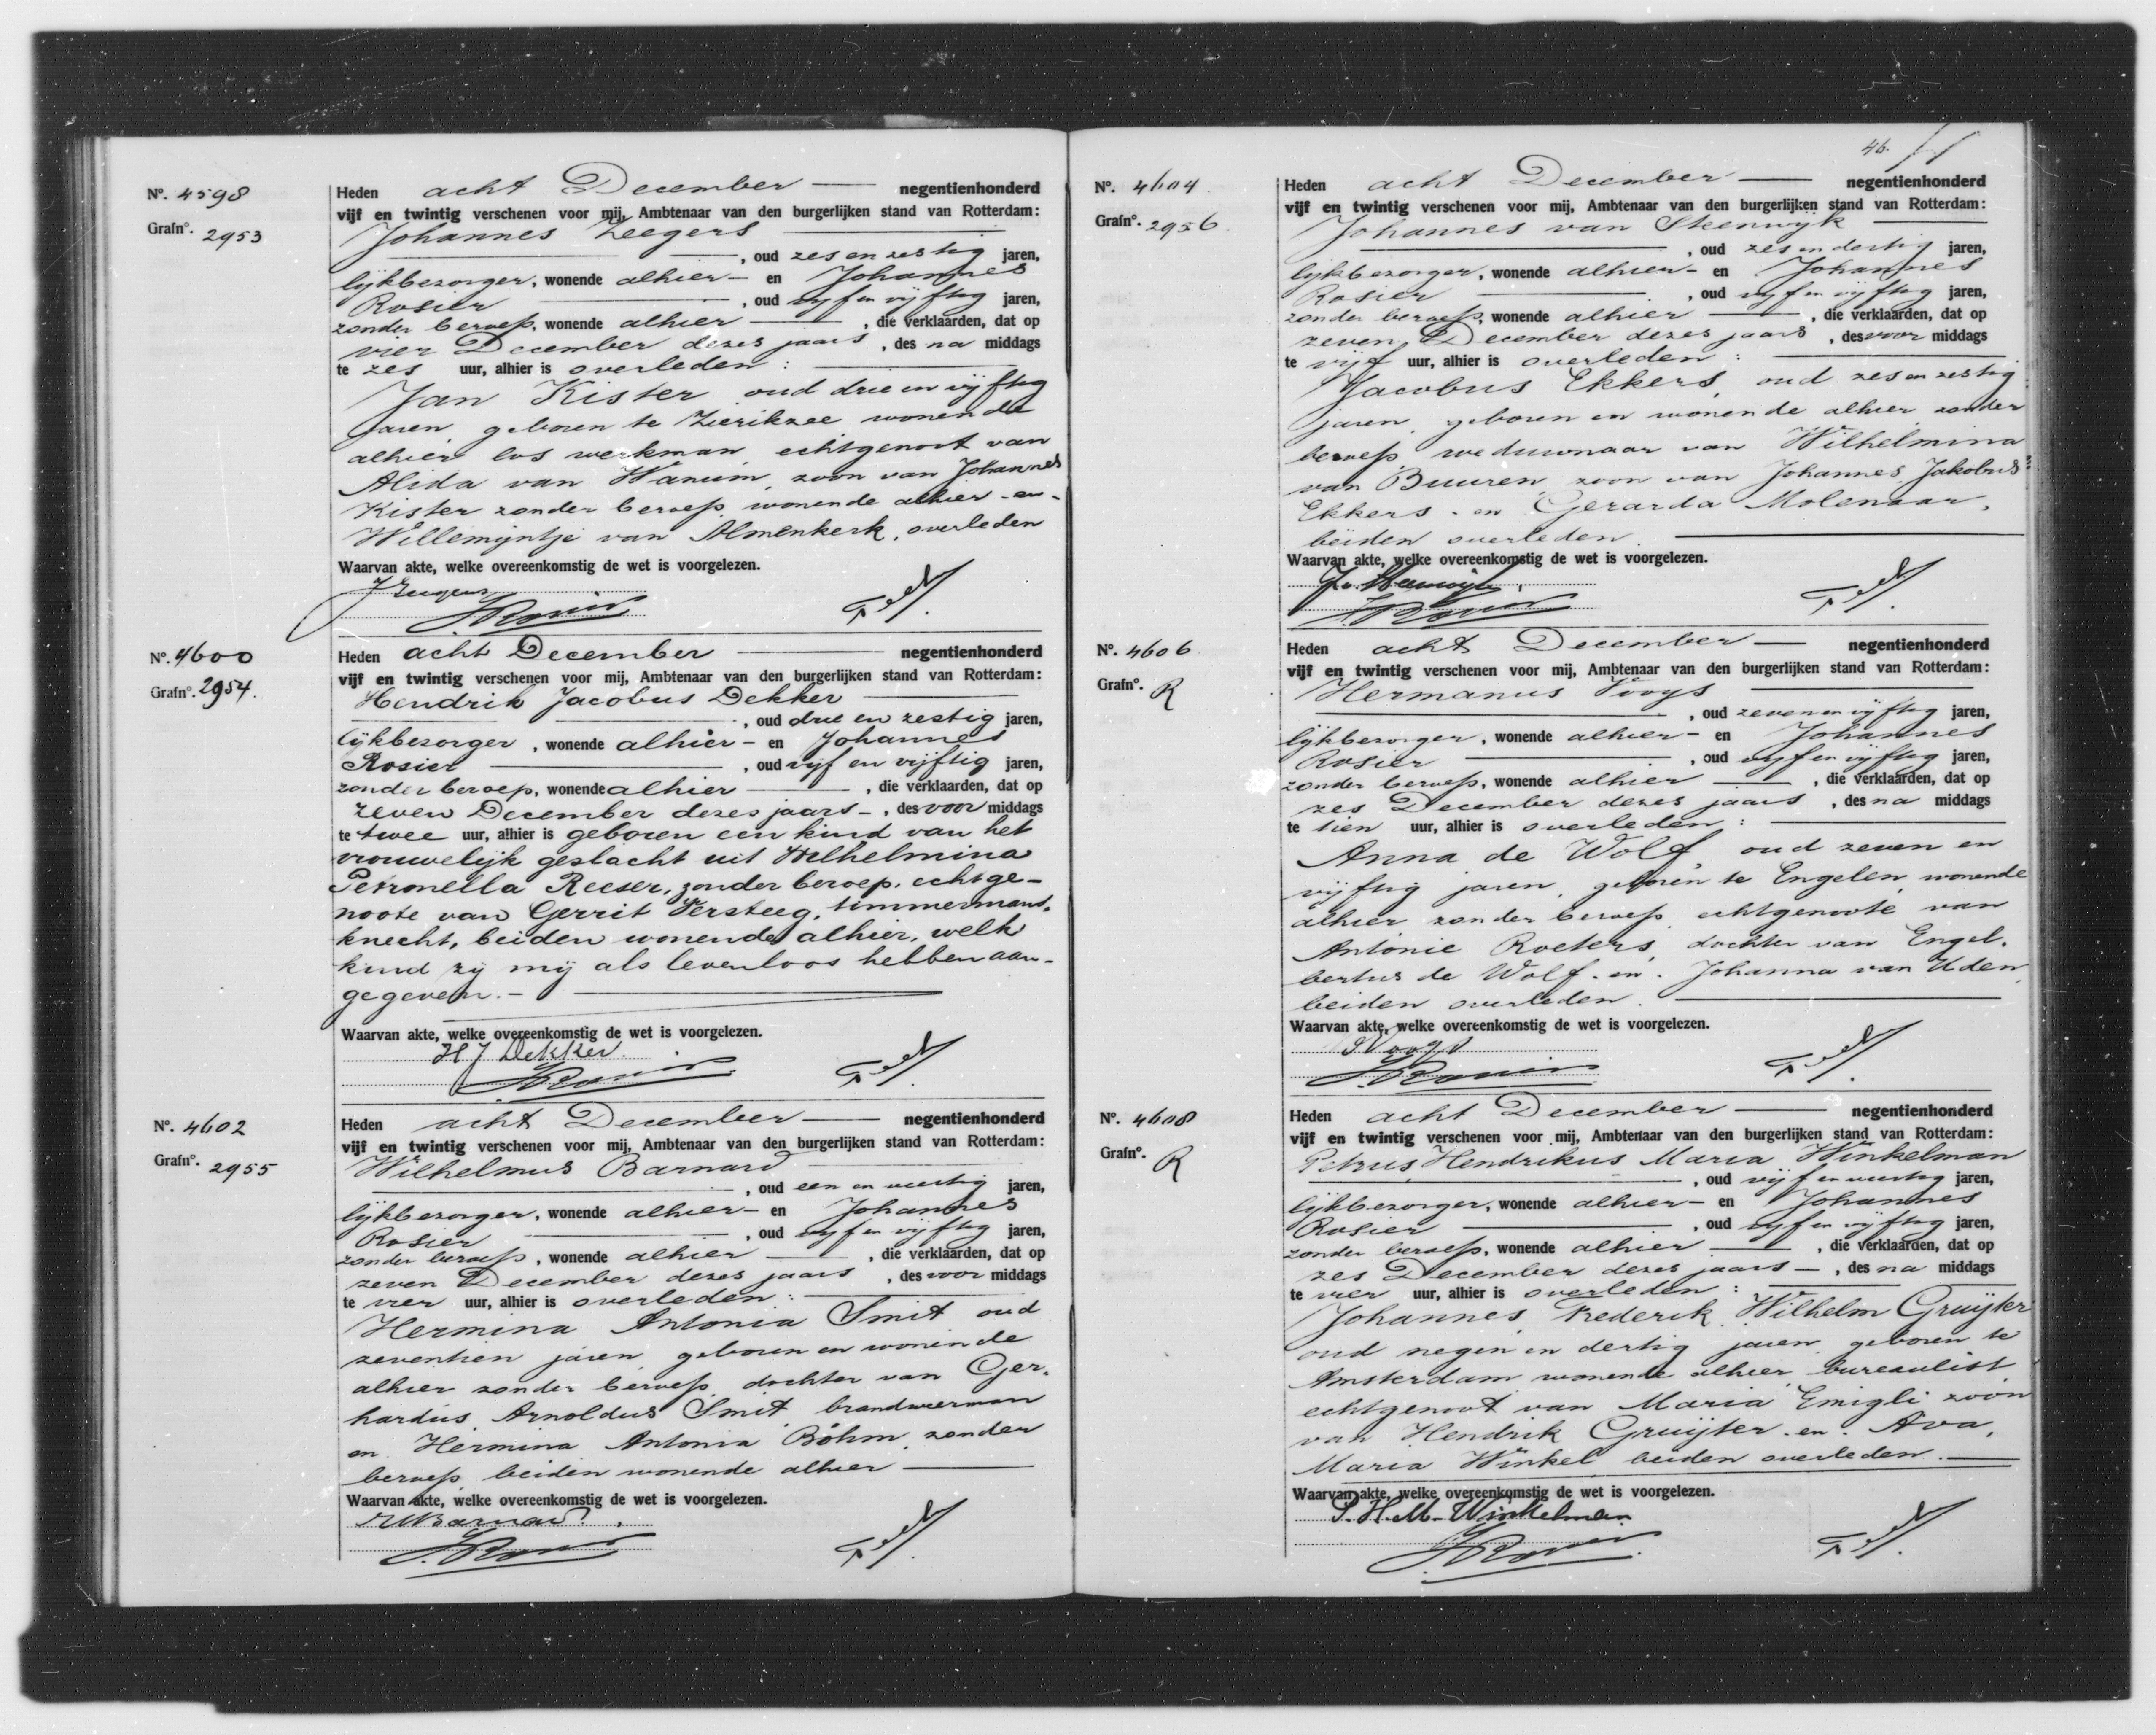 No. 4598
Grafno. 2953
Heden acht December negentienhonderd
vijf en twintig verschenen voor mij, Ambtenaar van den burgerlijken stand van Rotterdam:
Johannes Zeegers
, oud zes en zestig jaren,
lijkbezorger, wonende alhier - en Johannes
Rosier , oud vijf en vijftig jaren,
zonder beroep, wonende alhier , die verklaarden, dat op
vier December dezes jaars , des na middags
te zes uur, alhier is overleden :
Jan Kister oud drie en vijftig
jaren, geboren te Zierikzee wonende
alhier los werkman, echtgenoot van
Alida van Wanum, zoon van Johannes
Kister zonder beroep, wonende alhier - en -
Willemijntje van Almenkerk, overleden
Waarvan akte, welke overeenkomstig de wet is voorgelezen.
J Zeegers
J Rosier
No. 4600
Grafno. 2954.
Heden acht December negentienhonderd
vijf en twintig verschenen voor mij, Ambtenaar van den burgerlijken stand van Rotterdam:
Hendrik Jacobus Dekker
, oud drie en zestig jaren,
lijkbezorger , wonende alhier - en Johannes
Rosier , oud vijf en vijftig jaren,
zonder beroep, wonende alhier , die verklaarden, dat op
zeven December dezes jaars - , des voor middags
te twee uur, alhier is geboren een kind van het
vrouwelijk geslacht uit Wilhelmina
Petronella Reeser, zonder beroep, echtge-
noote van Gerrit Versteeg, timmermans-
knecht, beiden wonende alhier, welk
kind zij mij als levenloos hebben aan-
gegeven. -
Waarvan akte, welke overeenkomstig de wet is voorgelezen.
H J Dekker
J Rosier
No. 4602
Grafno. 2955
Heden acht December negentienhonderd
vijf en twintig verschenen voor mij, Ambtenaar van den burgerlijken stand van Rotterdam:
Wilhelmus Barnard
, oud een en veertig jaren,
lijkbezorger, wonende alhier - en Johannes
Rosier , oud vijf en vijftig jaren,
zonder beroep, wonende alhier , die verklaarden, dat op
zeven December dezes jaars , des voor middags
te vier uur, alhier is overleden :
Hermina Antonia Smit oud
zeventien jaren, geboren en wonende
alhier zonder beroep, dochter van Ger-
hardus Arnoldus Smit, brandweerman
en Hermina Antonia Böhm, zonder
beroep beiden wonende alhier
Waarvan akte, welke overeenkomstig de wet is voorgelezen.
W Barnard
J Rosier
46.
No. 4604.
Grafno. 2956
Heden acht December negentienhonderd
vijf en twintig verschenen voor mij, Ambtenaar van den burgerlijken stand van Rotterdam:
Johannes van Steenwijk
, oud zes en dertig jaren,
lijkbezorger, wonende alhier - en Johannes
Rosier , oud vijf en vijftig jaren,
zonder beroep, wonende alhier , die verklaarden, dat op
zeven December dezes jaars , des voor middags
te vijf uur, alhier is overleden :
Jacobus Ekkers, oud zes en zestig
jaren, geboren en wonende alhier, zonder
beroep, weduwnaar van Wilhelmina
van Buuren, zoon van Johannes Jakobus
Ekkers - en Gerarda Molenaar,
beiden overleden.
Waarvan akte, welke overeenkomstig de wet is voorgelezen.
J v Steenwijk
J Rosier
No. 4606
Grafno. R
Heden acht December negentienhonderd
vijf en twintig verschenen voor mij, Ambtenaar van den burgerlijken stand van Rotterdam:
Hermanus Vooys
, oud zeven en vijftig jaren,
lijkbezorger, wonende alhier - en Johannes
Rosier , oud vijf en vijftig jaren,
zonder beroep, wonende alhier , die verklaarden, dat op
zes December dezes jaars , des na middags
te tien uur, alhier is overleden :
Anna de Wolf, oud zeven en
vijftig jaren, geboren te Engelen, wonende
alhier zonder beroep, echtgenoote van
Antonie Roeters, dochter van Engel-
bertus de Wolf - en - Johanna van Uden,
beiden overleden.
Waarvan akte, welke overeenkomstig de wet is voorgelezen.
H Vooys
J Rosier
No. 4608
Grafno. R
Heden acht December negentienhonderd
vijf en twintig verschenen voor mij, Ambtenaar van den burgerlijken stand van Rotterdam:
Petrus Hendrikus Maria Winkelman
, oud vijf en veertig jaren,
lijkbezorger, wonende alhier - en Johannes
Rosier , oud vijf en vijftig jaren,
zonder beroep, wonende alhier , die verklaarden, dat op
zes December dezes jaars - , des na middags
te vier uur, alhier is overleden :
Johannes Frederik Wilhelm Gruijter
oud negen en dertig jaren geboren te
Amsterdam wonende alhier, bureaulist
echtgenoot van Maria Emigli zoon
van Hendrik Gruijter - en - Ava,
Maria Winkel, beiden overleden.
Waarvan akte, welke overeenkomstig de wet is voorgelezen.
P. H. M. Winkelman
J Rosier